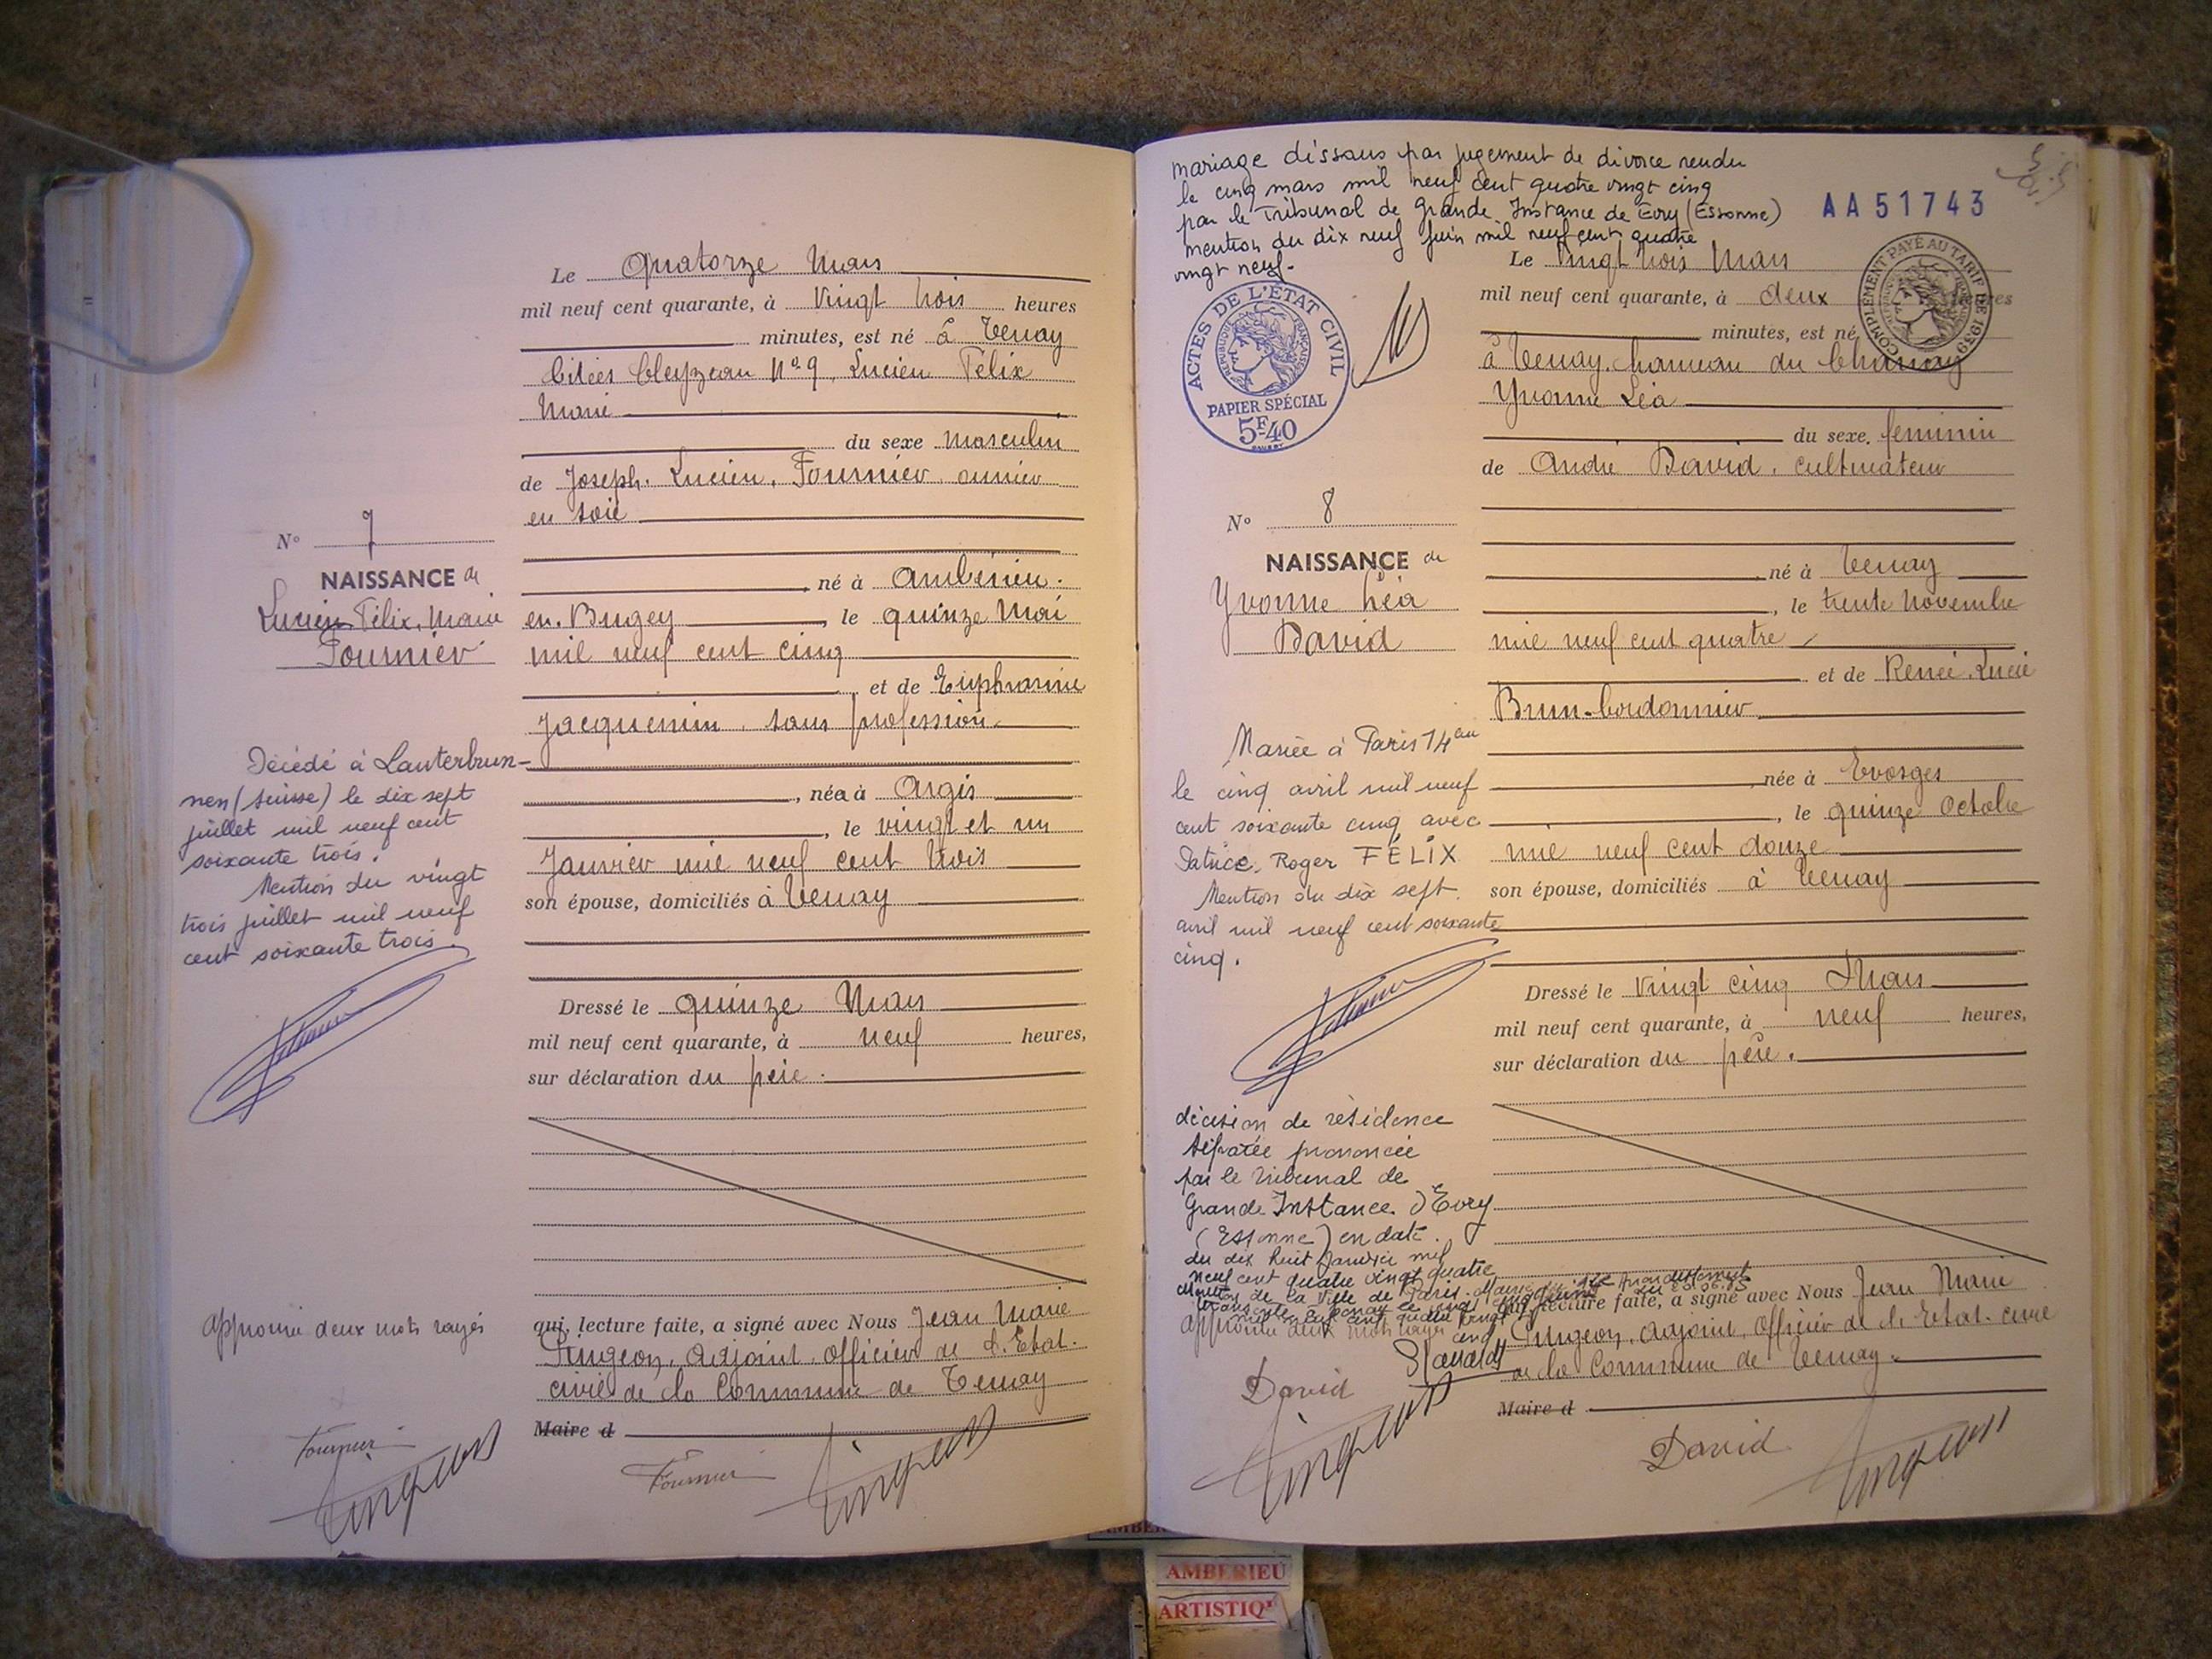 Le Quatorze Mars
mil neuf cent quarante, à Vingt trois heures
minutes, est né à Tenay
Citées Cleyzeau No 9, Lucien Félix
Marie
du sexe masculin
de Joseph. Lucien, Fournier, ouvrier
en soie
né à Ambérieu.
en. Bugey, le quinze Mai
mil neuf cent cinq
et de Euphrasine
Jacquemin, sans profession.
, née à Argis
, le vingt et un
Janvier mil neuf cent trois
son épouse, domiciliés à Tenay
Dressé le quinze Mars
mil neuf cent quarante, à neuf heures,
sur déclaration du père.
qui, lecture faite, a signé avec Nous Jean Marie
Pingeon, Adjoint, Officier de l'Etat.
civil de la Commune de Tenay
Maire d
N° 7
NAISSANCE de
Lucien Félix, Marie
Fournier
Décédé à Lauterbrun-
nen (Suisse) le dix sept
juillet mil neuf cent
soixante trois.
Mention du vingt
trois juillet mil neuf
cent soixante trois.
Approuvé deux mots rayés
Fournier
Pingeon
Fournier
Pingeon
mariage dissous par jugement de divorce rendu
le cinq mars mil neuf cent quatre vingt cinq
par le Tribunal de Grande Instance de Evry (Essonne)
mention du dix neuf juin mil neuf cent quatre
vingt neuf.
AA51743
ACTES DE L'ÉTAT CIVIL
RÉPUBLIQUE FRANÇAISE
PAPIER SPÉCIAL
5F40
COMPLÉMENT PAYÉ AU TARIF DE 1939
Le Vingt trois Mars
mil neuf cent quarante, à deux heures
minutes, est né
à Tenay, hameau du Chanay
Yvonne Léa
du sexe féminin
de André David, cultivateur
né à Tenay
, le trente Novembre
mil neuf cent quatre
et de Renée Lucie
Brun-Cordonnier
née à Evosges
, le quinze Octobre
mil neuf cent douze
son épouse, domiciliés à Tenay
Dressé le vingt cinq Mars
mil neuf cent quarante, à neuf heures,
sur déclaration du père.
qui, lecture faite, a signé avec Nous Jean Marie
Pingeon, Adjoint, Officier de l'Etat. civil
de la Commune de Tenay.
Maire d
N° 8
NAISSANCE de
Yvonne Léa
David
Mariée à Paris 14eme
le cinq avril mil neuf
cent soixante cinq avec
Patrice, Roger FÉLIX
Mention du dix sept
avril mil neuf cent soixante
cinq.
décision de résidence
séparée prononcée
par le Tribunal de
Grande Instance d'Evry
(Essonne) en date
du dix huit Janvier mil
neuf cent quatre vingt quatre
Mention de la Ville de Paris. Mairie
Approuvé deux mots rayés
David
Pingeon
David
Pingeon
AMBERIEU
ARTISTIQ